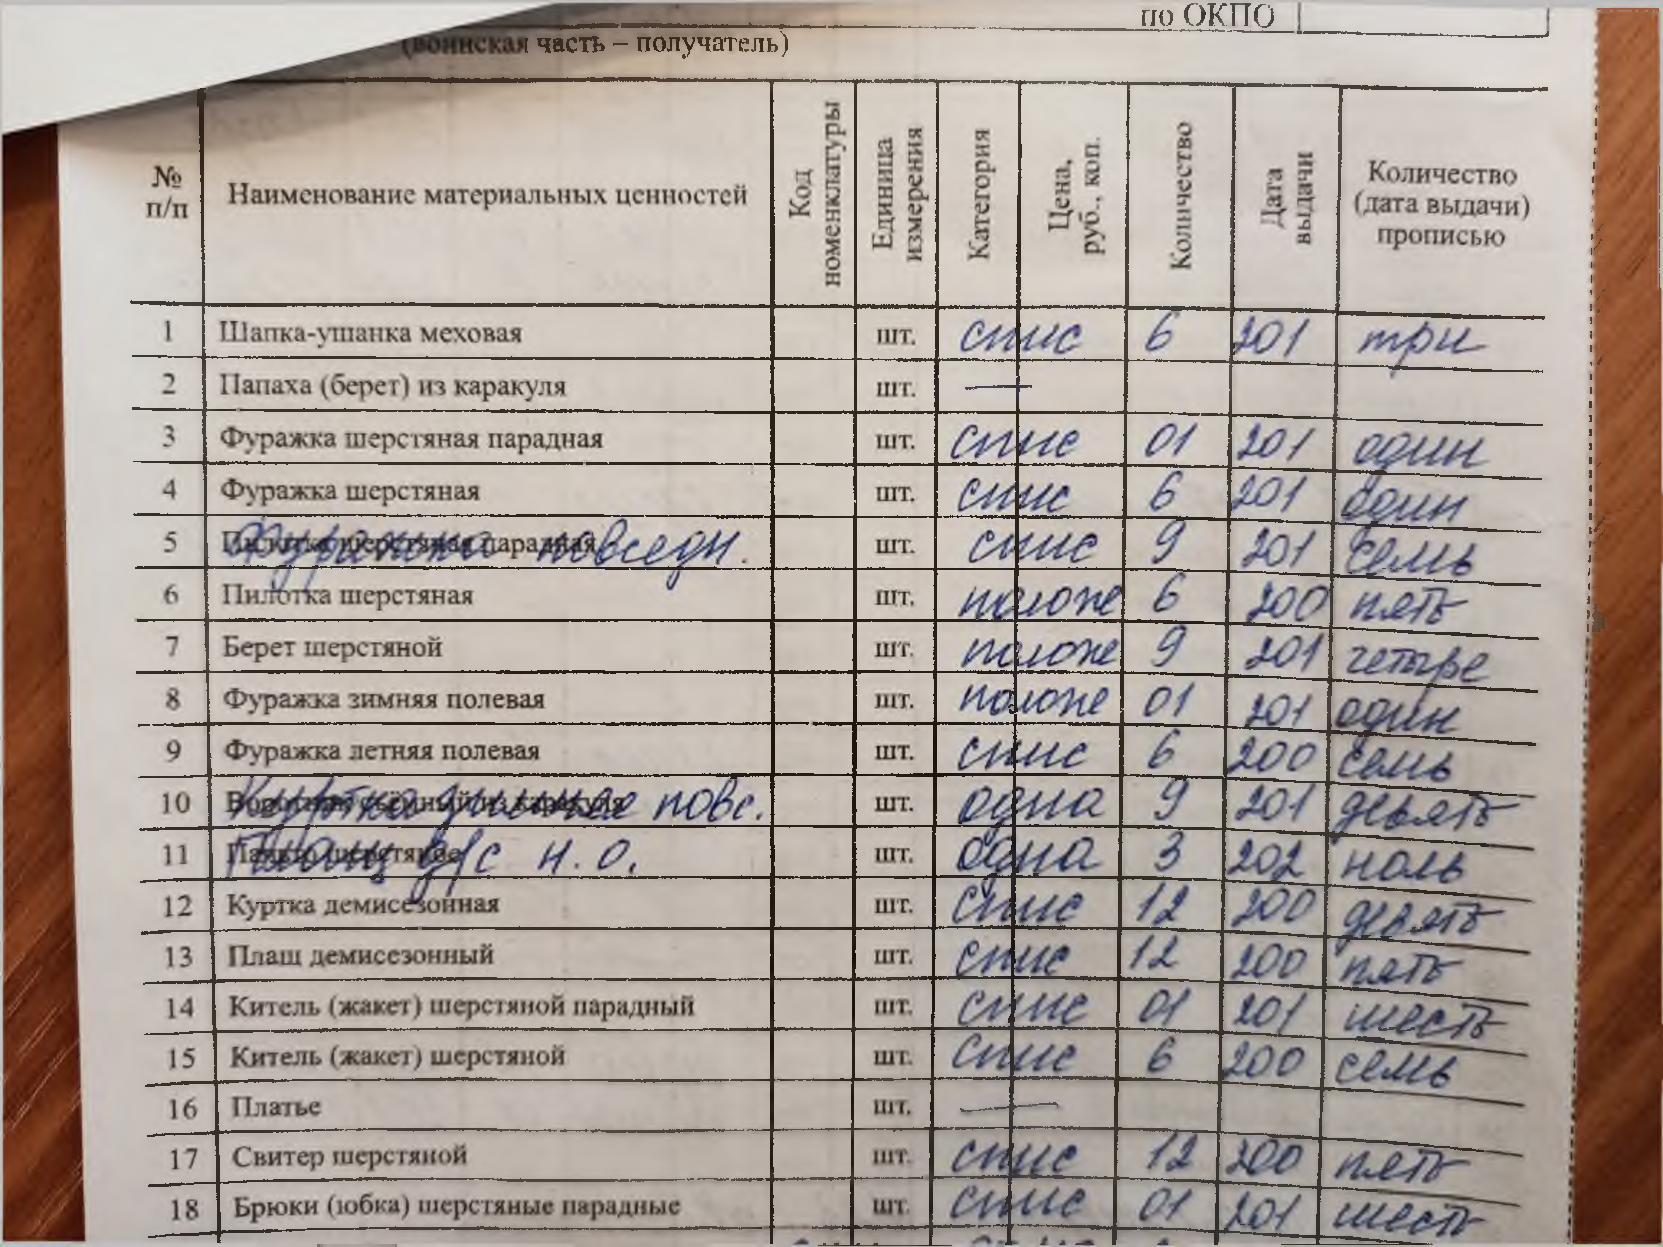 по ОКПО
(воинская часть – получатель)
№ п/п Наименование материальных ценностей Код номенклатуры Единица измерения Категория Цена, руб., коп. Количество Дата выдачи Количество (дата выдачи) прописью
1 Шапка-ушанка меховая шт. спис 6 201 три
2 Папаха (берет) из каракуля шт. —
3 Фуражка шерстяная парадная шт. спис 01 201 один
4 Фуражка шерстяная шт. спис 6 201 один
5 Пилотка шерстяная парадная Фуражка повседн. шт. спис 9 201 семь
6 Пилотка шерстяная шт. положе 6 200 пять
7 Берет шерстяной шт. положе 9 201 четыре
8 Фуражка зимняя полевая шт. положе 01 201 один
9 Фуражка летняя полевая шт. спис 6 200 семь
10 Воротник съёмный из каракуля Куртка зимняя повс. шт. одна 9 201 девять
11 Пальто шерстяное Плащ д/с н. о. шт. одна 3 202 ноль
12 Куртка демисезонная шт. спис 12 200 девять
13 Плащ демисезонный шт. спис 12 200 пять
14 Китель (жакет) шерстяной парадный шт. спис 01 201 шесть
15 Китель (жакет) шерстяной шт. спис 6 200 семь
16 Платье шт. —
17 Свитер шерстяной шт. спис 12 200 пять
18 Брюки (юбка) шерстяные парадные шт. спис 01 201 шесть